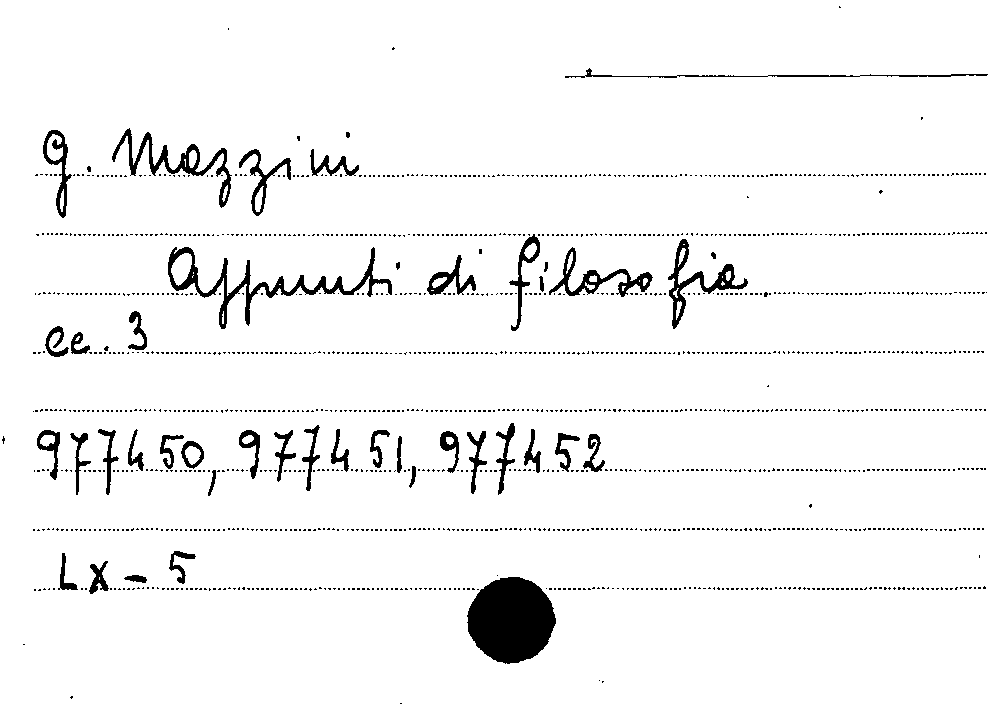 G. Mazzini
Appunti di filosofia.
cc. 3
977450, 977451, 977452
LX - 5